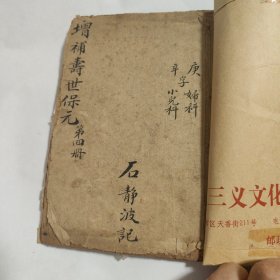 增補壽世保元 第四冊
庚字 婦科
辛字 小兒科
石静波記
三义文化
区天香街211号
邮